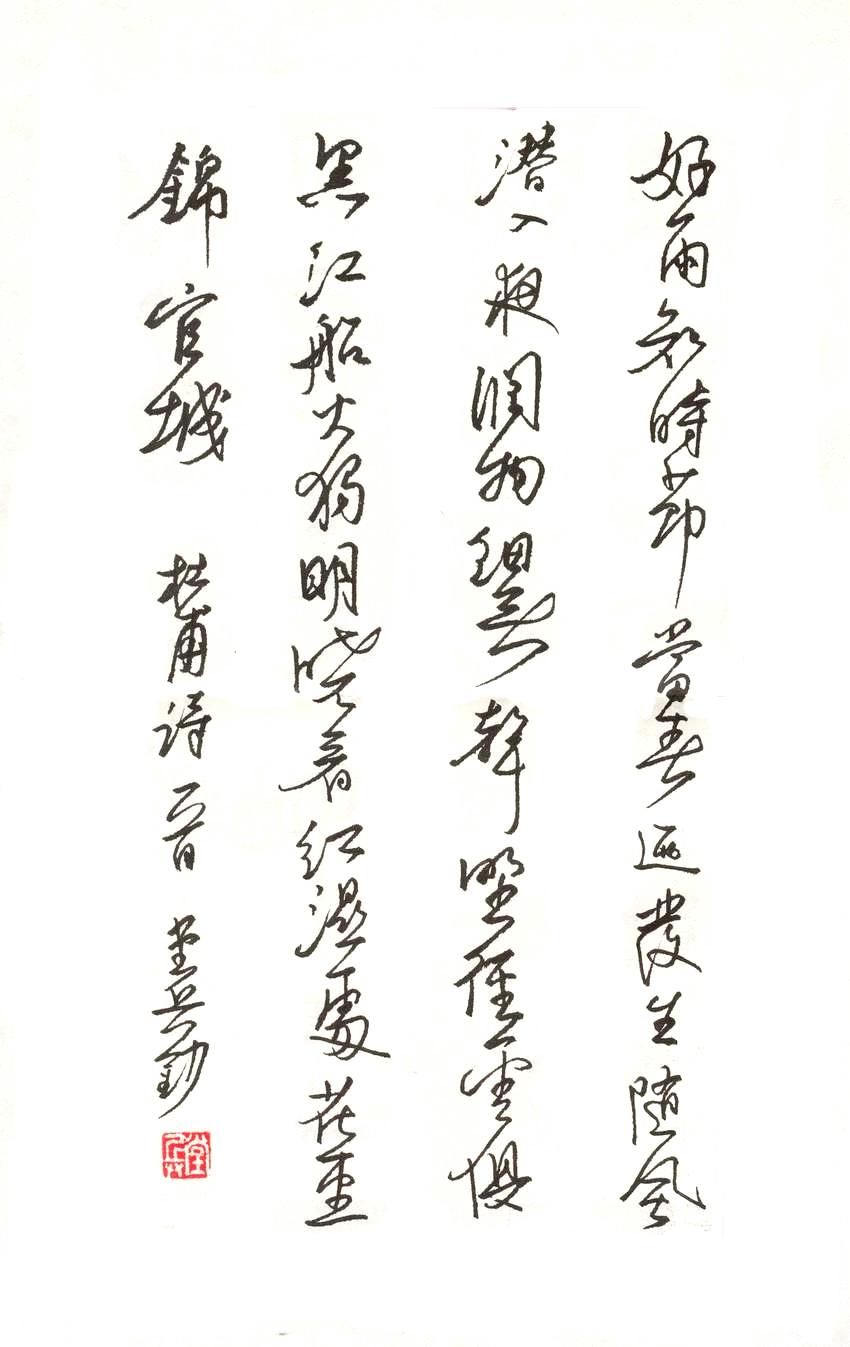 好雨知時節當春迺發生随風
潜入夜潤物細無聲野徑雲俱
黑江船火獨明曉看紅濕處花重
錦官城 杜甫詩一首